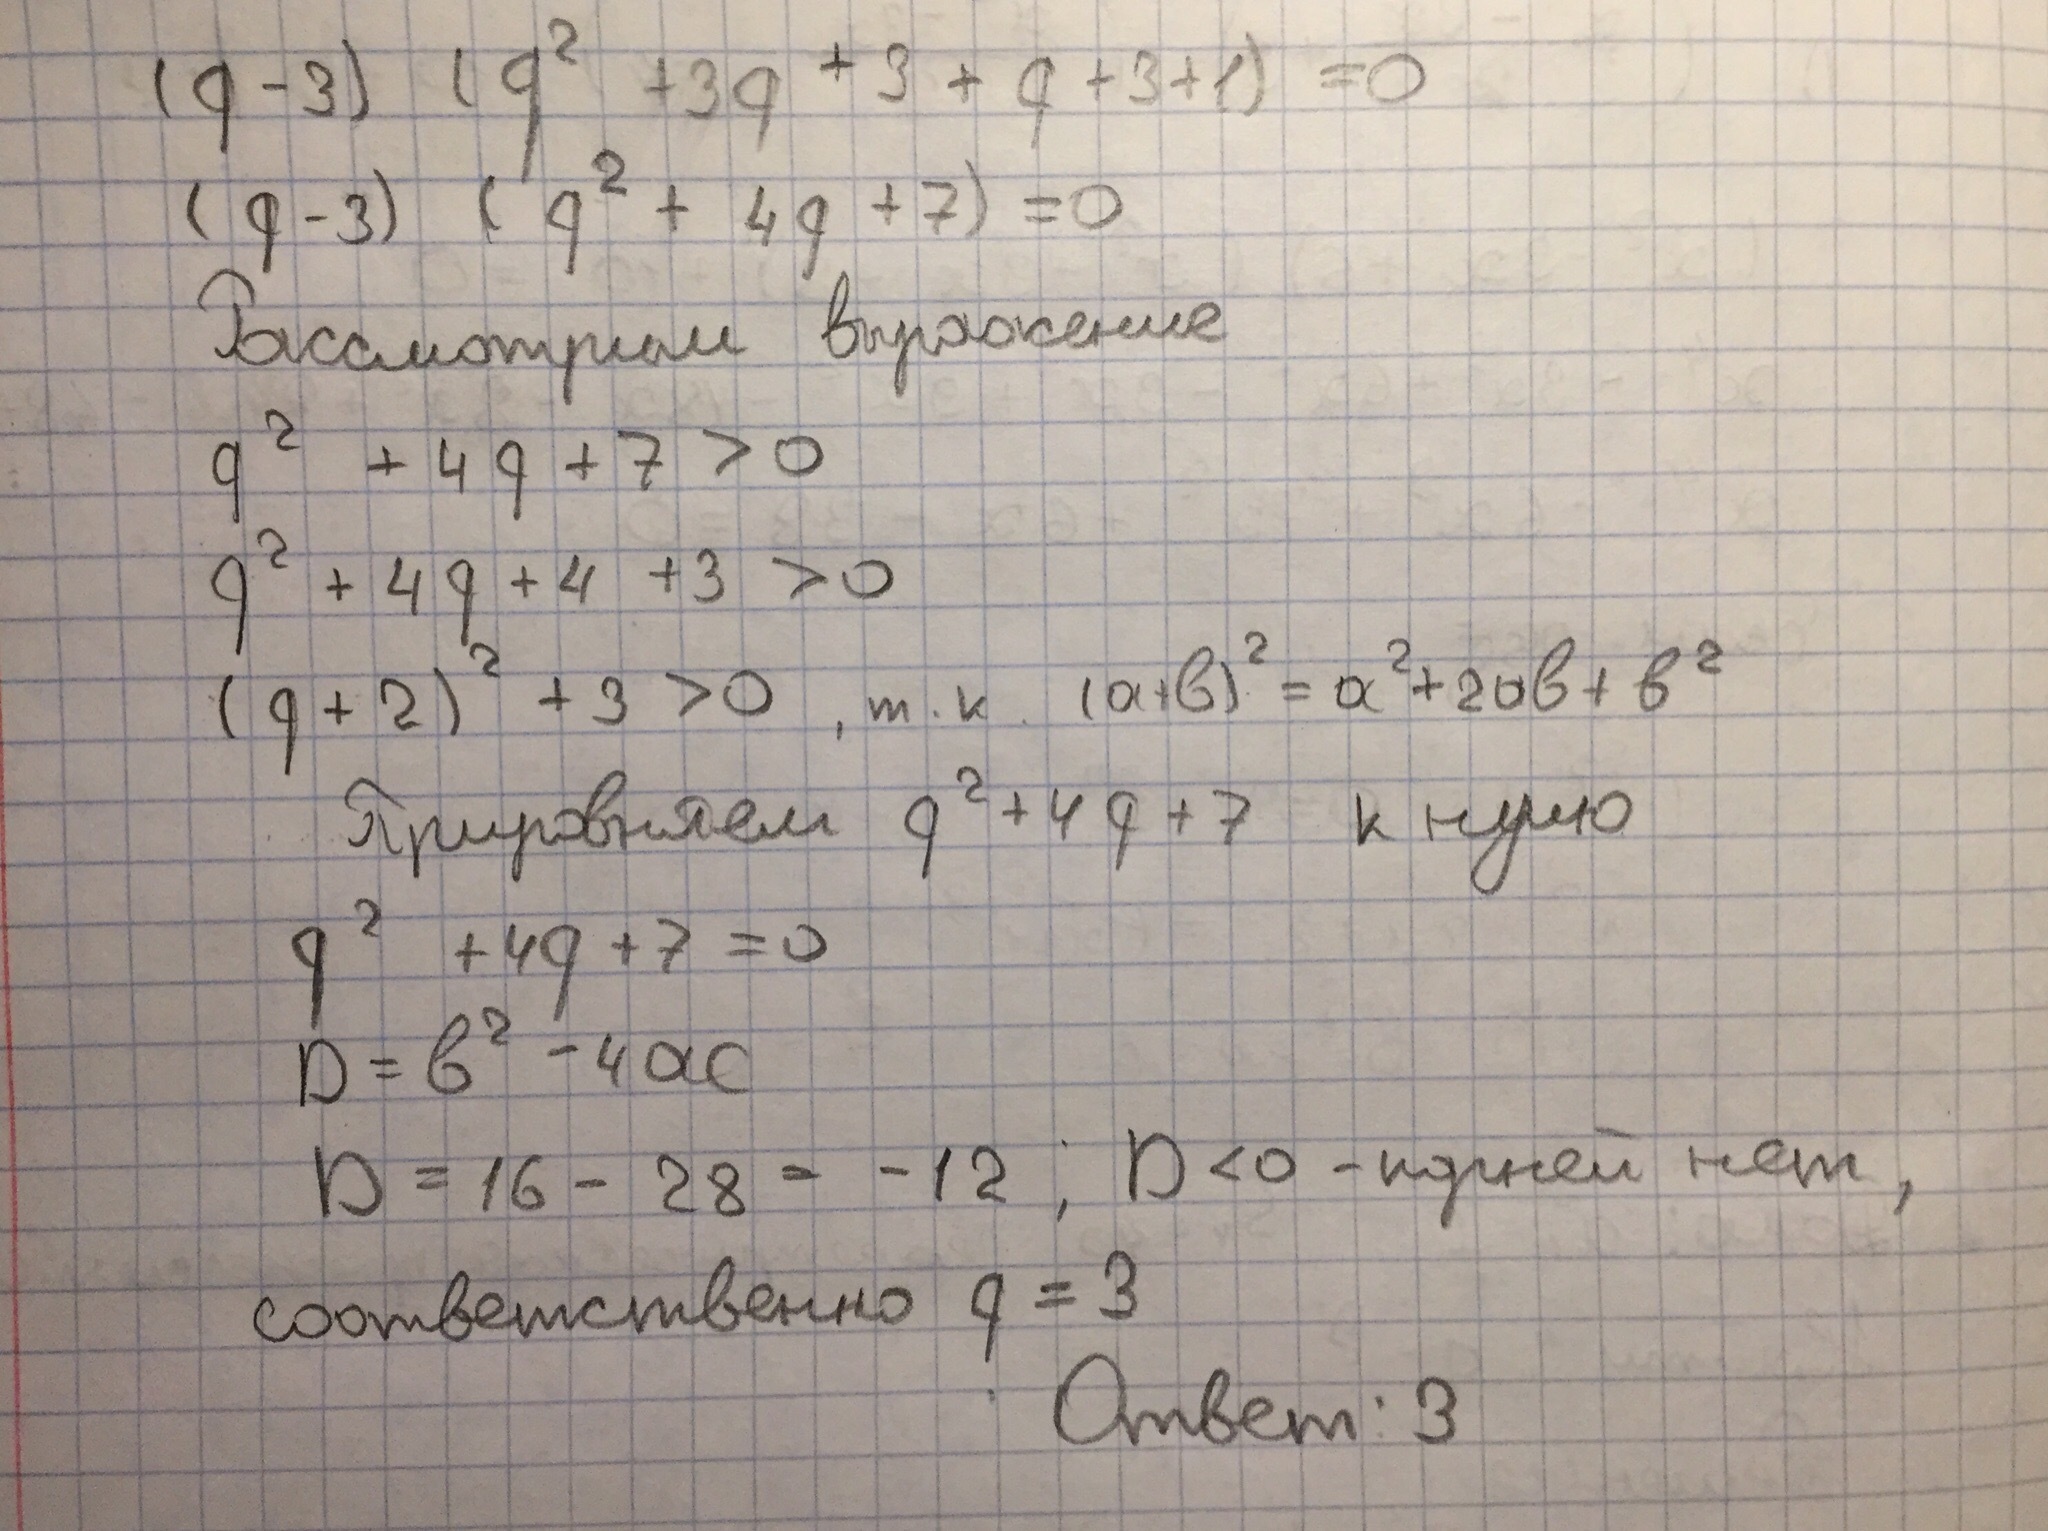 (q-3) (q² +3q +3 + q +3+1) =0
(q-3) (q² + 4q +7) =0
Рассмотрим выражение
q² + 4q + 7 >0
q² + 4q + 4 +3 >0
(q+2)² +3 >0 , т.к. (a+b)² = a²+2ab+b²
Прировняем q²+4q+7 к нулю
q² +4q+7 =0
D = b² -4ac
D = 16 - 28 = -12 ; D<0 - корней нет,
соответственно q = 3
Ответ: 3